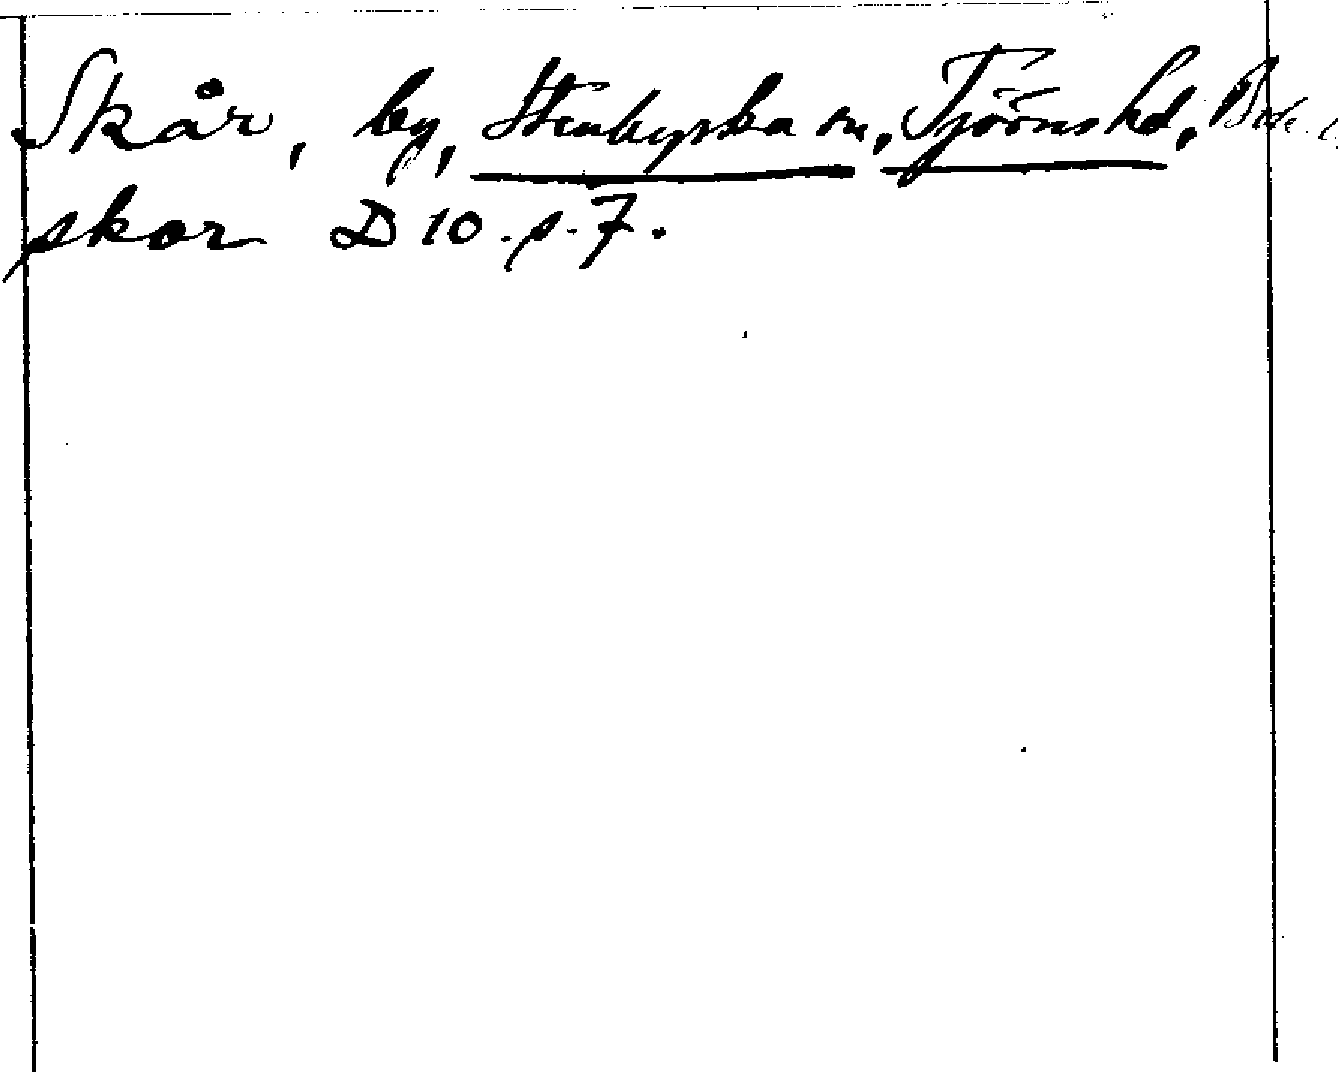 Skår, by, Stenkyrka sn, Tjörns hd,
skor D 10. s. 7.